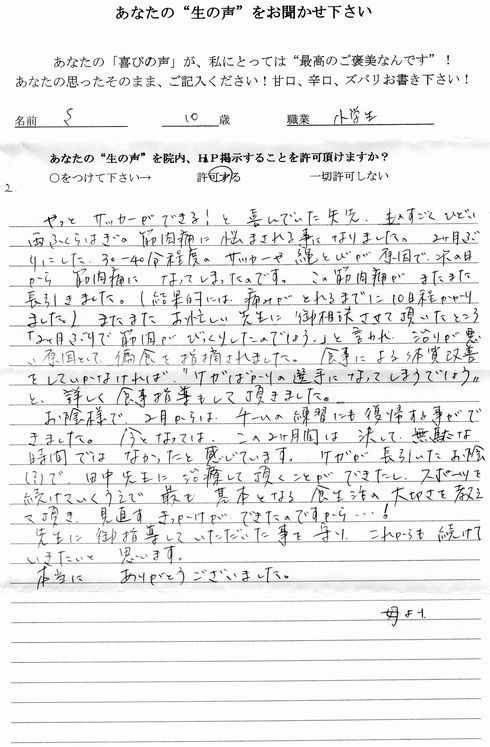 あなたの“生の声”をお聞かせ下さい
あなたの「喜びの声」が、私にとっては“最高のご褒美なんです”！
あなたの思ったそのまま、ご記入ください！甘口、辛口、ズバリお書き下さい！
名前 S 10 歳 職業 小学生
あなたの“生の声”を院内、HP掲示することを許可頂けますか？
○をつけて下さい→ 許可する 一切許可しない
2.
やっと サッカーができる！と 喜んでいた矢先、ものすごくひどい
両ふくらはぎの筋肉痛に悩まされる事になりました。2ヶ月ぶ
りにした、30〜40分程度の サッカーや 縄とびが原因で、次の日
から 筋肉痛に なってしまったのです。この筋肉痛が またまた
長引きました。(結果的には、痛みが とれるまでに10日程かかり
ました) またまた お忙しい先生に 御相談させて頂いたところ
「2ヶ月ぶりで筋肉が びっくりしたのでしょう。」と言われ、治りが悪
い原因として、偏食を指摘されました。食事による体質改善
をしていかなければ、“ケガばかりの選手になってしまうでしょう”
と、詳しく食事指導もして頂きました。
お陰様で、2月からは、チームの練習にも復帰する事がで
きました。今となっては、この2ヶ月間は 決して、無駄な
時間では なかったと感じています。ケガが長引いたお陰
(?)で、田中先生に 治療して頂くことができたし、スポーツを
続けていくうえで 最も 基本となる 食生活の大切さを教え
て頂き、見直す きっかけが できたのですから…！
先生に 御指導していただいた事を守り、これからも続けて
いきたいと 思います。
本当に ありがとうございました。
母より